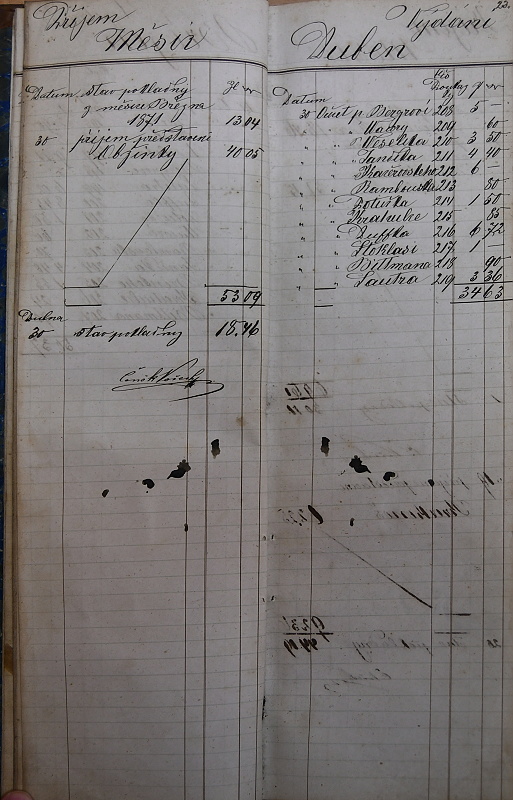 Příjem
Měsíc
Datum stav pokladny zl kr
z měsíce Března
1871 13 04
30 příjem představení
Objinky 40 05
53 09
Dubna
30 stav pokladny 18.46
23.
Vydání
Duben
Čís
Datum Rozkaz zl kr
30 Účet p. Bergrovi 208 5 —
" " 209 60
" " Weselska 210 3 50
" " Janečka 211 4 40
" " 212 6 —
" " 213 80
" " 214 1 50
" " 215 85
" " Duffka 216 6 72
" " Stoklasi 217 1 —
" " Bittmana 218 90
" " Sautra 219 3 36
34 63